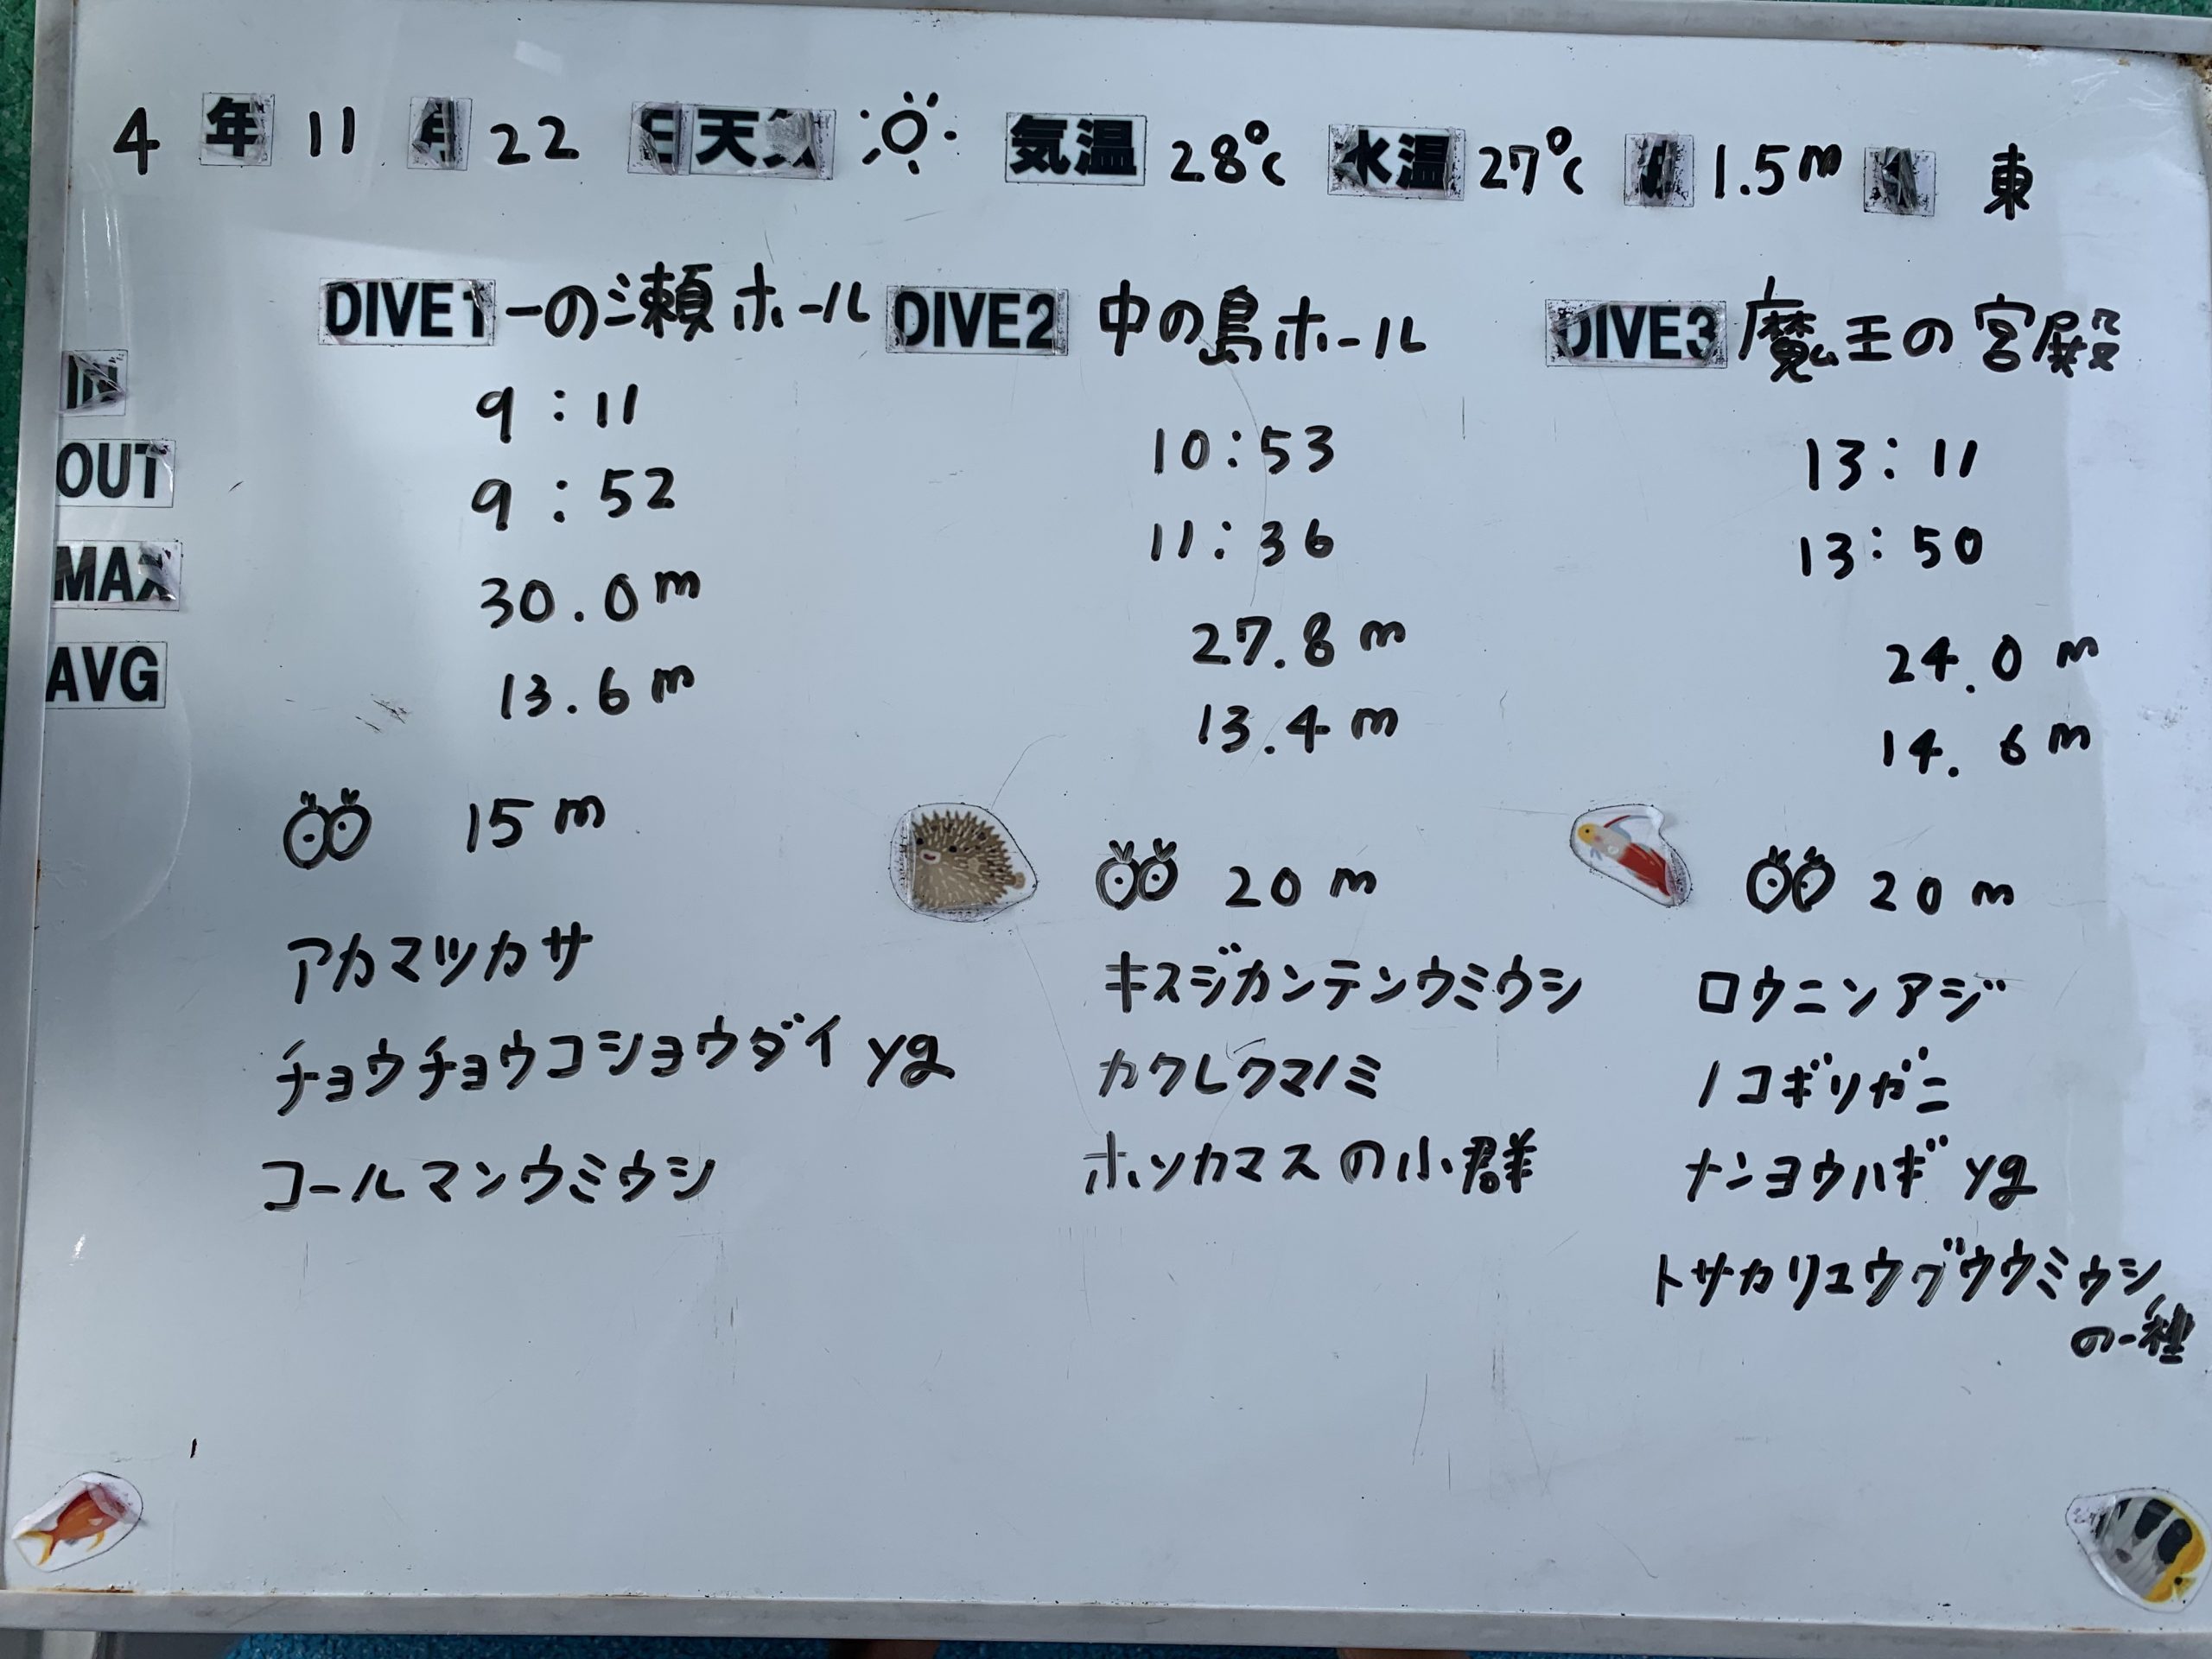 4 年 11 月 22 日 天気 気温 28℃ 水温 27℃ 1.5m 東
DIVE1 一の瀬ホール DIVE2 中の島ホール DIVE3 魔王の宮殿
IN 9:11 10:53 13:11
OUT 9:52 11:36 13:50
MAX 30.0m 27.8m 24.0m
AVG 13.6m 13.4m 14.6m
15m 20m 20m
アカマツカサ キスジカンテンウミウシ ロウニンアジ
チョウチョウコショウダイ yg カクレクマノミ ノコギリガニ
コールマンウミウシ ホソカマスの小群 ナンヨウハギ yg
トサカリュウグウウミウシ
の一種